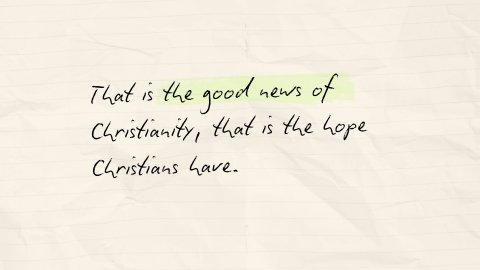 That is the good news of
Christianity, that is the hope
Christians have.